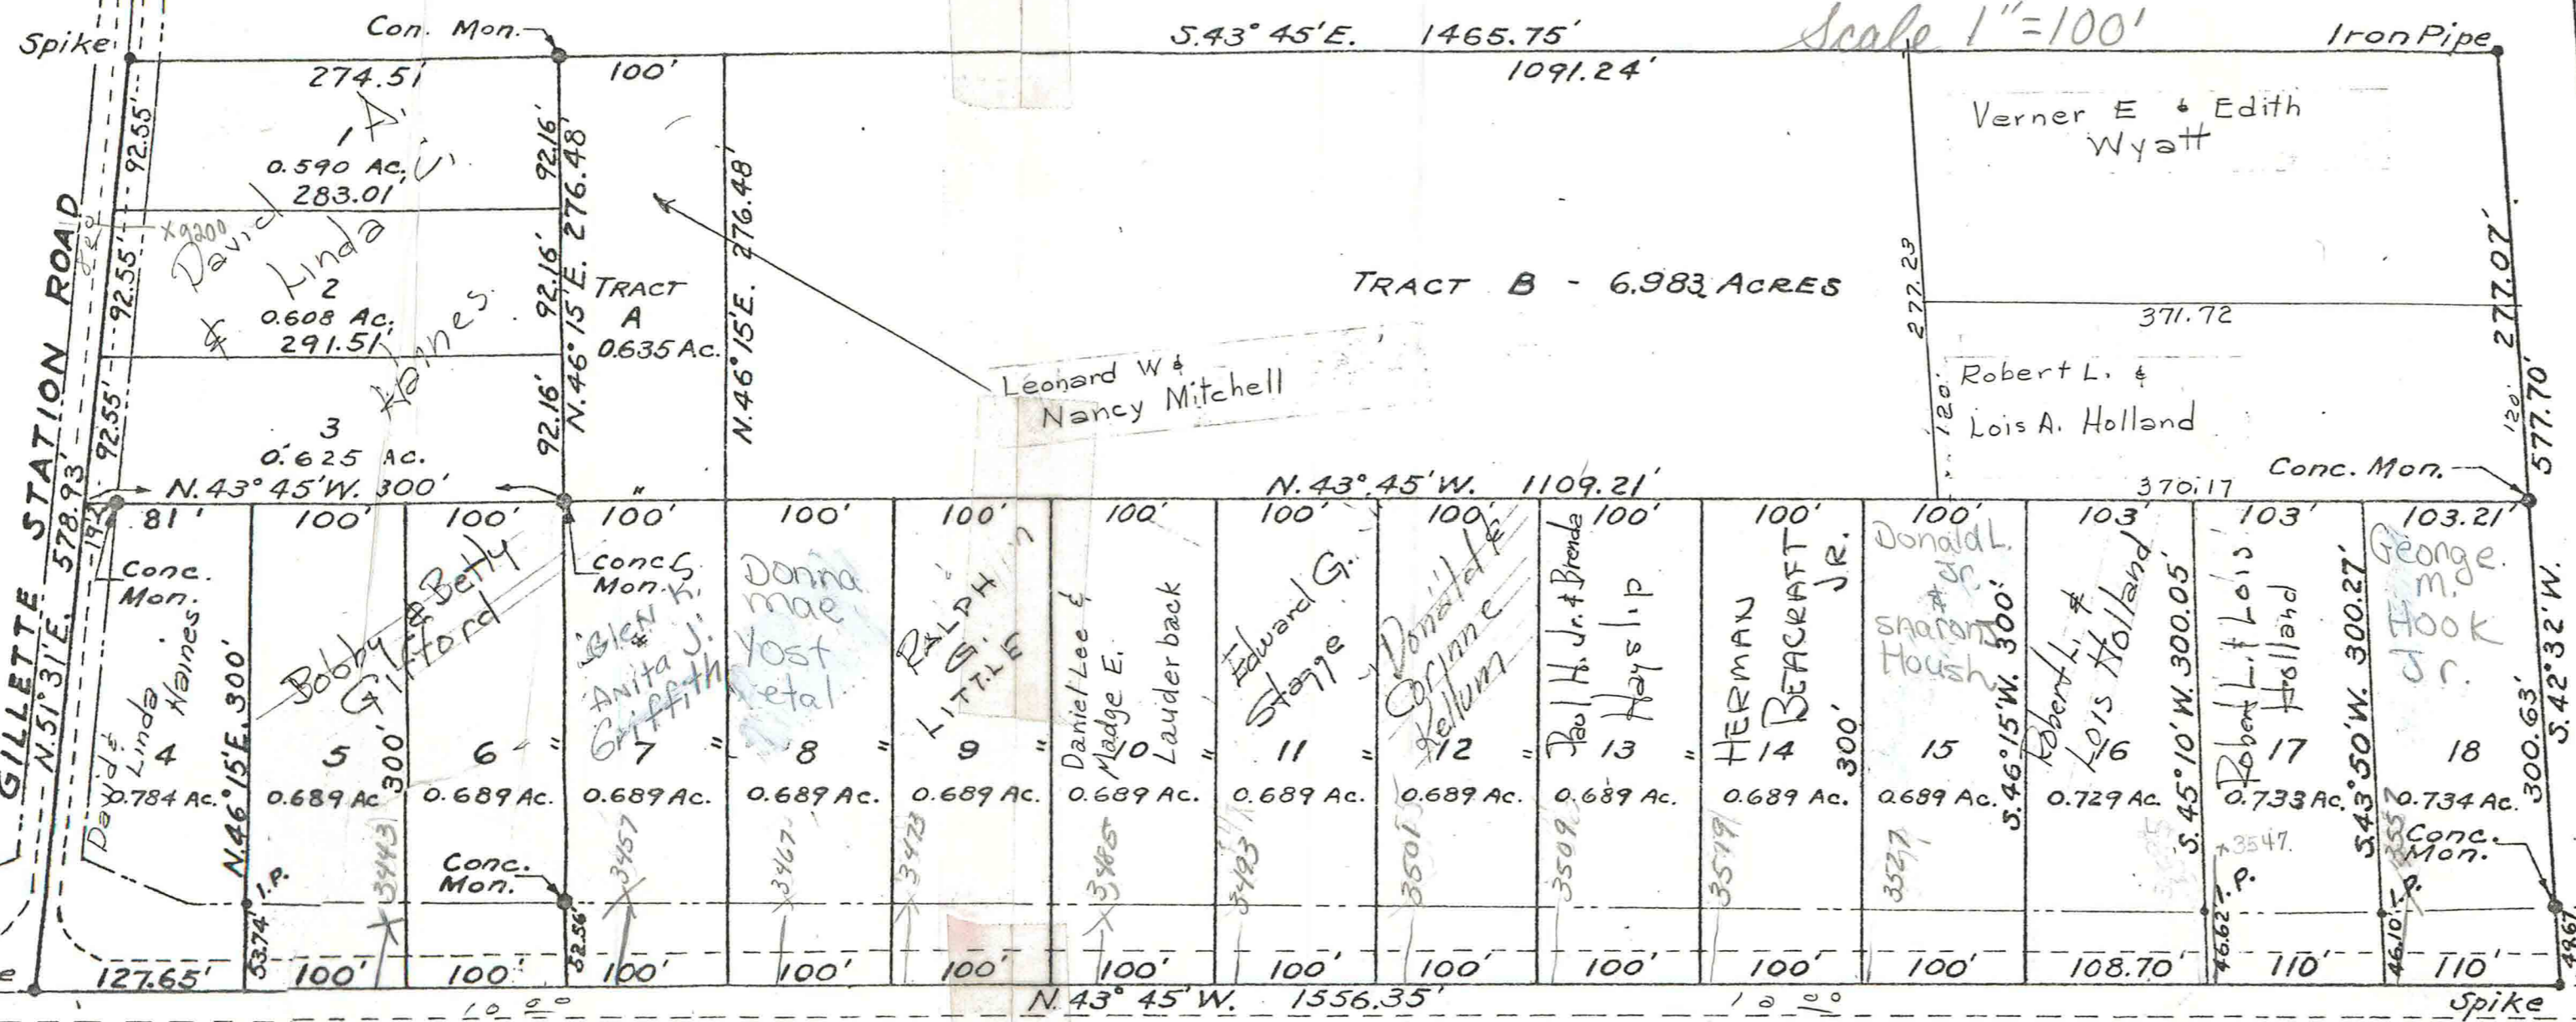 Scale 1"=100'
Spike
Con. Mon.
S.43° 45'E. 1465.75'
Iron Pipe
274.51'
100'
1091.24'
92.55'
1
0.590 Ac.
283.01'
92.16'
92.55'
x9200
David
&
Linda
Haines
2
0.608 Ac.
291.51'
92.16'
92.55'
3
0.625 Ac.
92.16'
N.46°15'E. 276.48'
TRACT
A
0.635 Ac.
N.46°15'E. 276.48'
Leonard W &
Nancy Mitchell
TRACT B - 6.983 ACRES
277.23
Verner E & Edith
Wyatt
371.72
120'
Robert L. &
Lois A. Holland
120'
370.17
277.07'
577.70'
S.42°32'W.
Conc. Mon.
GILLETTE STATION ROAD
N.51°31'E. 578.93'
N.43°45'W. 300'
"
N.43°45'W. 1109.21'
81'
100'
100'
100'
100'
100'
100'
100'
100'
100'
100'
100'
103'
103'
103.21'
192'
Conc.
Mon.
David &
Linda
Haines
4
0.784 Ac.
N.46°15'E. 300'
Bobby & Betty
Gifford
5
0.689 Ac
300'
6 "
0.689 Ac.
Conc.
Mon.
GLEN K.
&
ANita J.
Griffith
7 "
0.689 Ac.
Donna
mae
Yost
etal
8 "
0.689 Ac.
RALPH
G.
LITTLE
9 "
0.689 Ac.
Daniel Lee &
Madge E.
Lauderback
10 "
0.689 Ac.
Edward G.
Stagge
11 "
0.689 Ac.
Donald &
Corinne
Kellum
12 "
0.689 Ac.
Paul H. Jr. & Brenda
Hayslip
13 "
0.689 Ac.
HERMAN
BEACRAFT
JR.
14
300'
0.689 Ac.
Donald L.
Jr.
&
Sharon
Housh
15
0.689 Ac.
S.46°15'W. 300'
Robert L. &
Lois Holland
16
0.729 Ac.
S.45°10'W. 300.05'
Robert L. & Lois
Holland
17
0.733 Ac.
S.43°50'W. 300.27'
George
M.
HOOK
Jr.
18
0.734 Ac.
300.63'
Conc.
Mon.
Conc.
Mon.
I.P.
x3443
x3457
x3467
x3473
x3485
3493
3501
3509
3519
3527
x3547
3557
I.P.
I.P.
53.74'
52.56'
46.62'
46.10'
127.65'
100'
100'
100'
100'
100'
100'
100'
100'
100'
100'
100'
108.70'
110'
110'
N.43°45'W. 1556.35'
Spike